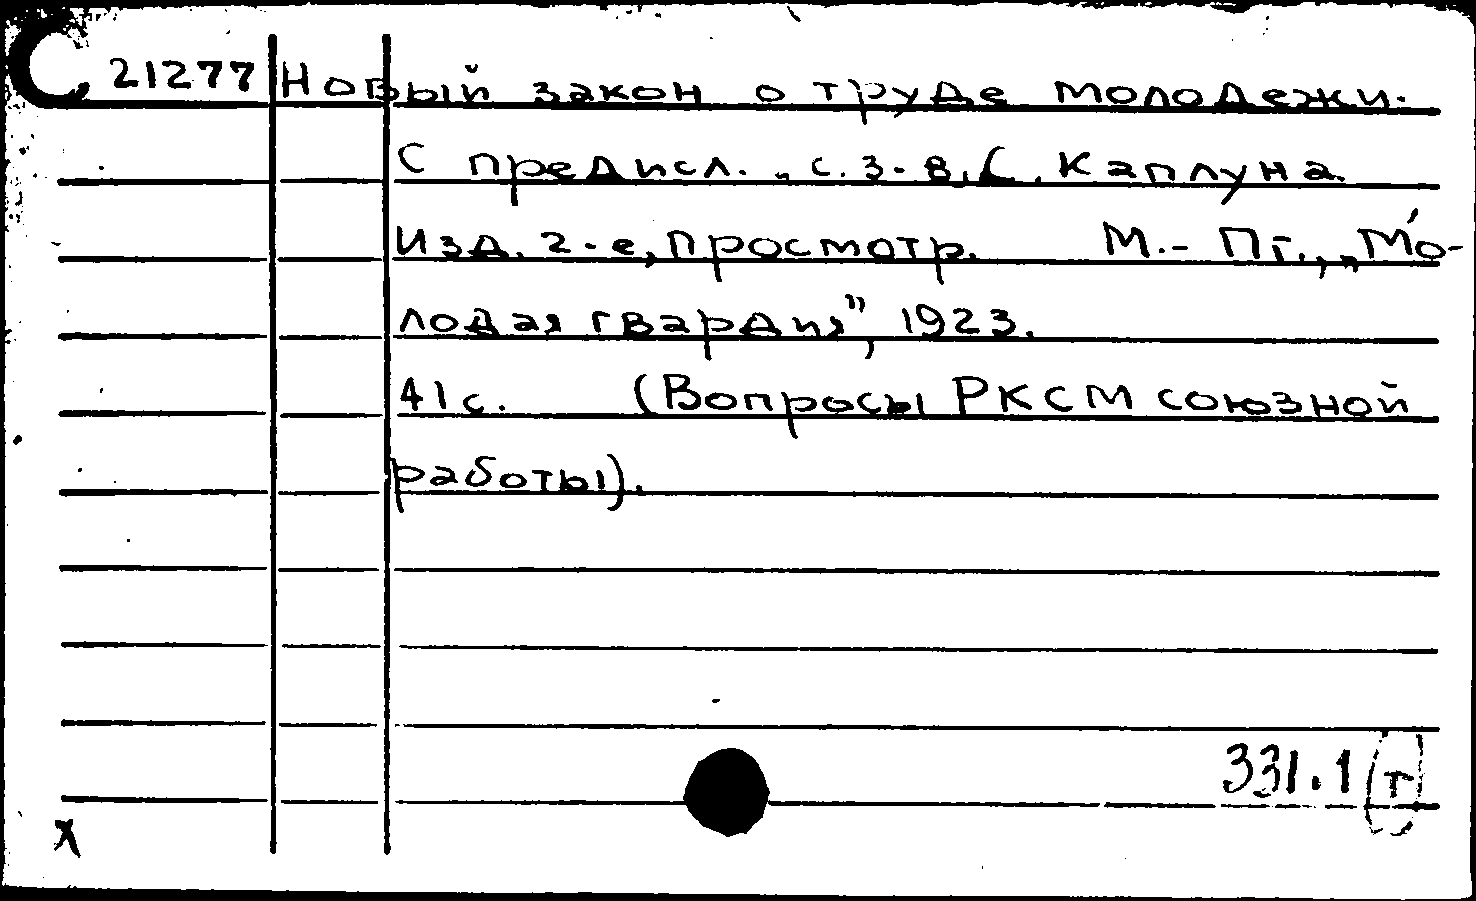 С 21277 Новый закон о труде молодежи.
С предисл., с. 3-8, С. Каплуна.
Изд. 2-е, просмотр. М.- Пг., „Мо-
лодая гвардия", 1923.
41 с. (Вопросы РКСМ союзной
работы).
331.1 (т)
х